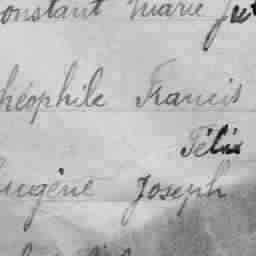 onstant Marie
héophile Francis
Félix
ugène Joseph